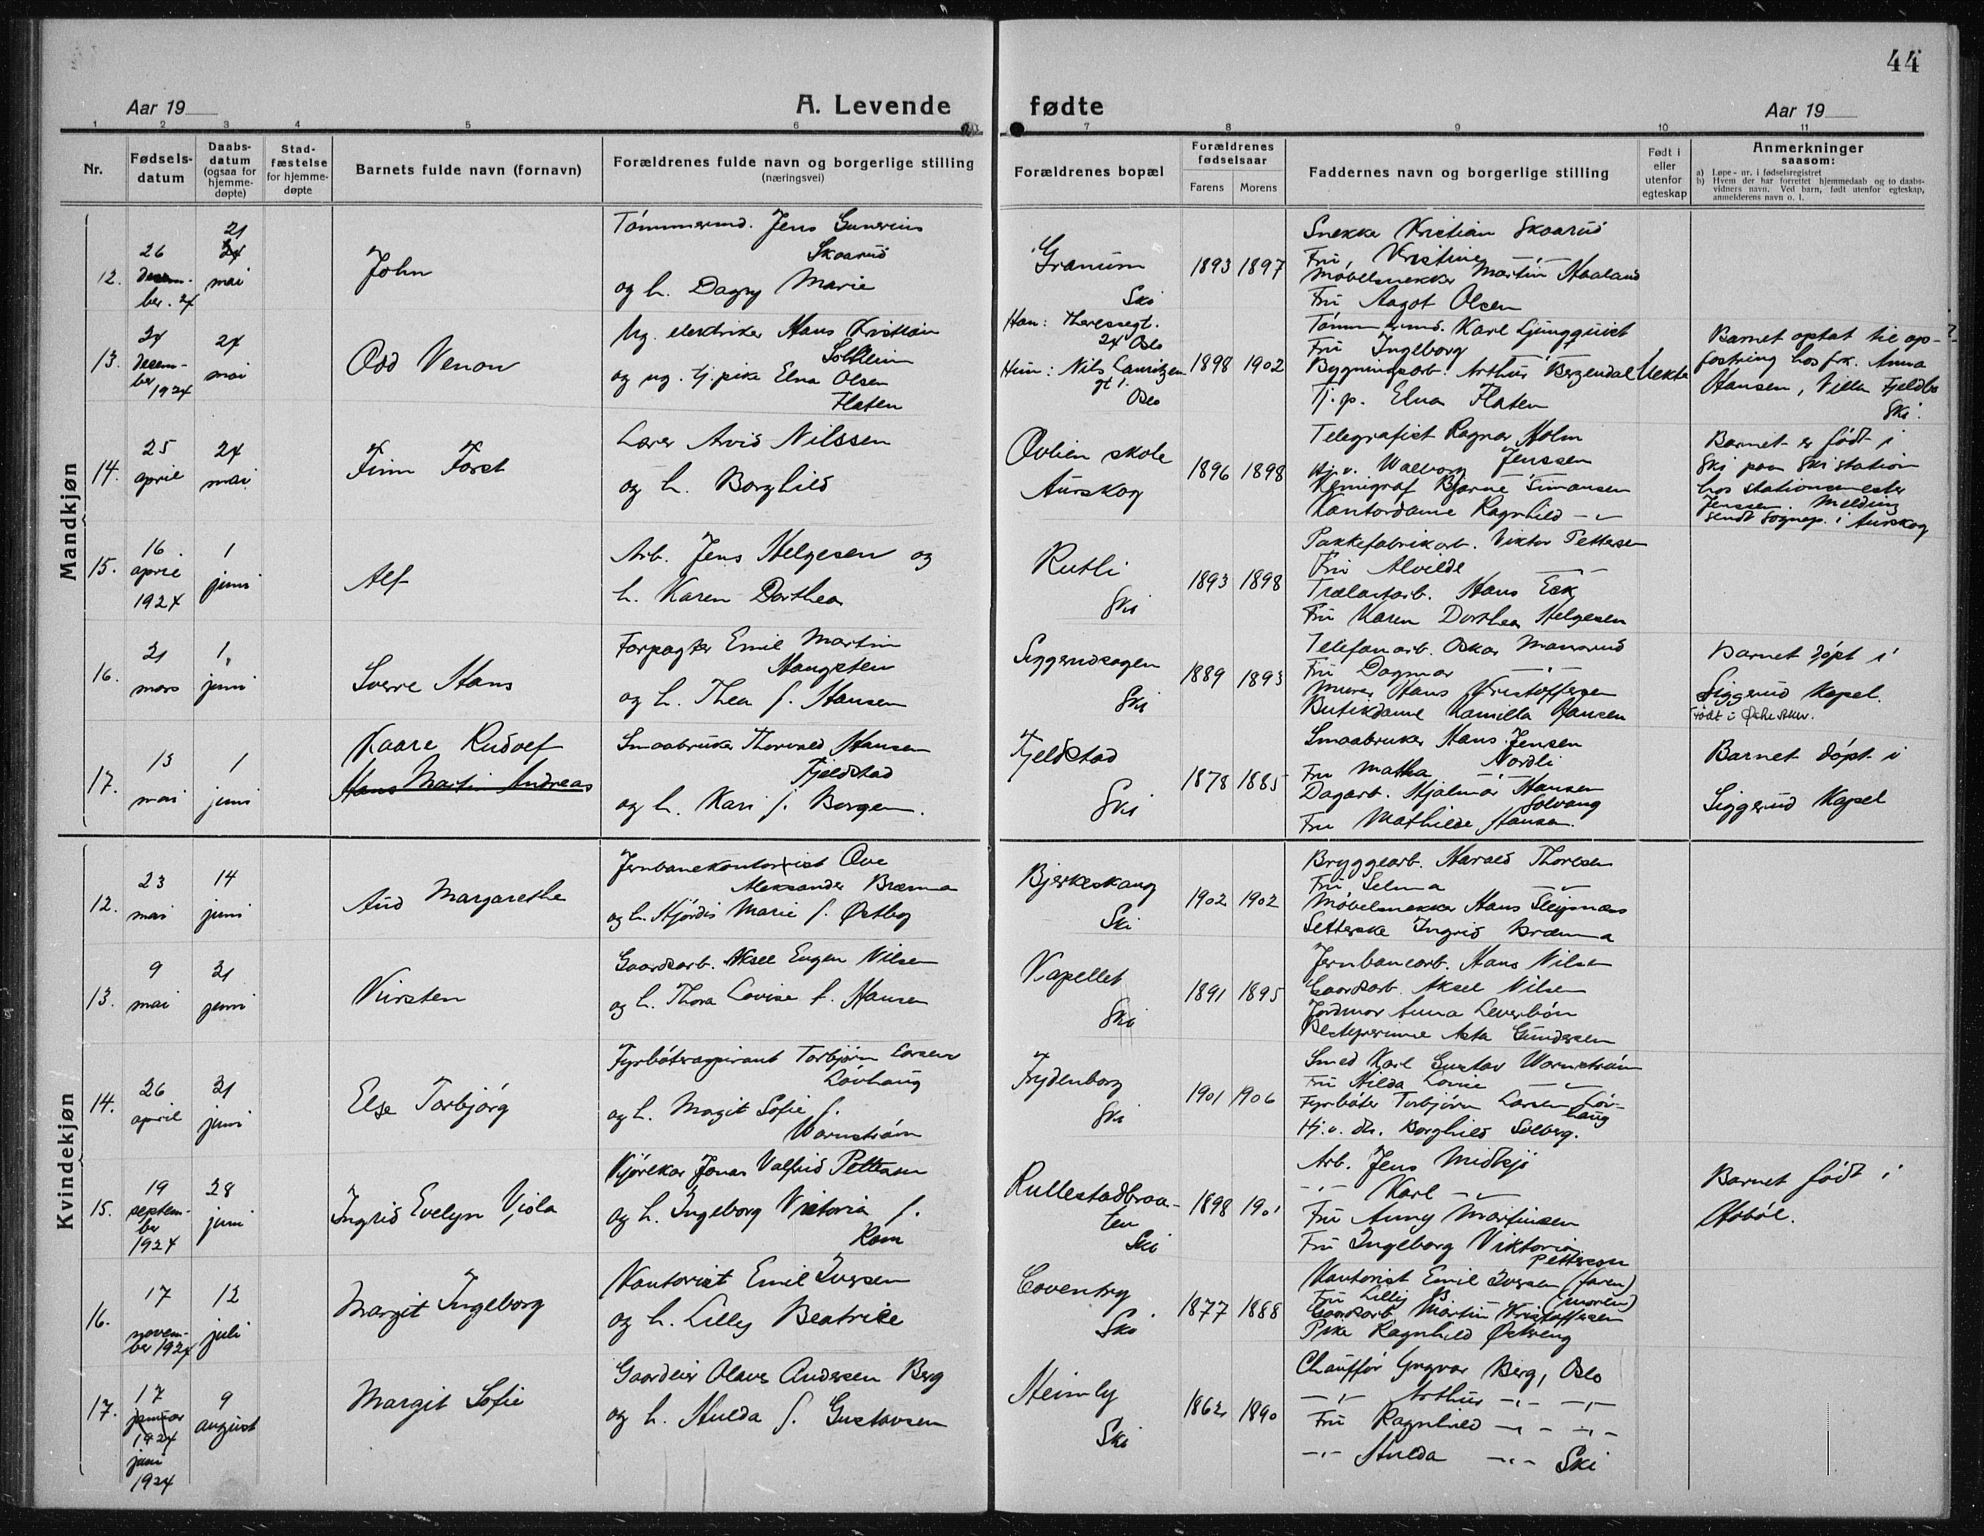 44
Aar 19
A. Levende
fødte
Aar 19
1 2 3 4 5 6 7 8 9 10 11
Nr.
Fødsels-
datum
Daabs-
datum
(ogsaa for
hjemme-
døpte)
Stad-
fæstelse
for hjemme-
døpte
Barnets fulde navn (fornavn)
Forældrenes fulde navn og borgerlige stilling
(næringsvei)
Forældrenes bopæl
Forældrenes
fødselsaar
Farens
Morens
Faddernes navn og borgerlige stilling
Født i
eller
utenfor
egteskap
Anmerkninger
saasom:
a) Løpe-nr. i fødselsregistret
b) Hvem der har forrettet hjemmedaab og to daabs-
vidners navn. Ved barn, født utenfor egteskap,
anmelderens navn o. l.
Mandkjøn
12.
26
decem-
ber. 24
21
mai
John
Tømmermd. Jens Gunerius
Skaarud
og h. Dagny Marie
Granum
Ski
1893
1897
Snekker Kristian Skaarud
Fru Kristine
Møbelsnekker Martin Haaland
Fru Aagot Olsen
13.
24
decem-
ber
1924
24
mai
Odd Venon
Ug. elektriker Hans Kristian
og ug. tj. pike Elna Olsen
Flaten
Han: Theresegt.
24 Oslo
Hun: Nils Lauritzen
gt.
Oslo
1898
1902
Tømmermd. Karl Ljungquist
Fru Ingeborg
Bygningsarb. Arthur Bergendal
Tj. p. Elna Flaten
Uekte
Barnet optat til op-
fostring hos frk. Anna
Hansen, Villa Fjeldbo
Ski.
14.
25
april
24
mai
Finn Forst
Lærer Arvid Nilssen
og h. Borghild
Aurskog
skole
1896
1898
Telegrafist Ragnar Holm
Hj.v. Walborg Jenssen
Kemigraf Bjarne Simonsen
Kontordame Ragnhild
Barnet er født i
Ski paa Ski station
hos stationsmester
Jenssen. Melding
sendt sognep. i Aurskog
15.
16
april
1924
1
juni
Alf
Arb. Jens Helgesen og
h. Karen Dorthea
Rutli
Ski
1893
1898
Pakkefabrikarb. Viktor Pettersen
Fru Alvilde
Trælastarb. Hans Eek
Fru Karen Dorthea Helgesen
16.
21
mars
1
juni
Sverre Hans
Forpagter Emil Martin
Haugsten
og h. Thea f. Hansen
Siggerudhagen
Ski
1889
1893
Telefonarb. Oskar Mansrud
Fru Dagmar
Murer Hans Kristoffersen
Butikdame Kamilla Hansen
Barnet døpt i
Siggerud Kapel.
Født i Østre Aker.
17.
13
mai
1
juni
Kaare Rudolf
Hans Martin Andreas
Smaabruker Thorvald Hansen
Fjeldstad
og h. Kari f. Borgen.
Fjeldstad
Ski
1878
1885
Smaabruker Hans Jensen
Nordli
Fru Matha
Dagarb. Hjalmar Hansen
Solvang
Fru Mathilde Hansen.
Barnet døpt i
Siggerud Kapel
Kvindekjøn
12.
23
mai
14
juni
Aud Margarethe
Jernbanekontorist Ove
Aleksander Bræmna
og h. Hjørdis Marie f. Østby
Bjerkeskaug
Ski
1902
1902
Bryggearb. Harald Thoresen
Fru Selma
Møbelsnekker Hans
Setterske Ingrid Bræmna
13.
9
mai
21
juni
Kirsten
Gaardsarb. Aksel Eugen Nilsen
og h. Thora Lovise f. Hansen
Kapellet
Ski
1891
1895
Jernbanearb. Hans Nilsen
Gaardsarb. Aksel Nilsen
Jordmor Anna Leverbøn
Bestyrerinne Asta Gundersen
14.
26
april
21
juni
Else Torbjørg
Fyrbøteraspirant Torbjørn Larsen
Løvhaug
og h. Margit Sofie f.
Wornstrøm
Frydenborg
Ski
1901
1906
Smed Karl Gustav Wornstrøm
Fru Hilda Lovise
Fyrbøter Torbjørn Larsen Løv-
haug
Hj.v. dr. Borghild Solberg.
15.
19
septem-
ber
1924
28
juni
Ingrid Evelyn Viola
Kjørekar Jonas Valfrid Petterson
og h. Ingeborg Victoria f.
Ram
Rullestadbraa-
ten
Ski
1898
1901
Arb. Jens Midtsjø
Karl
Fru Anny Martinsen
Fru Ingeborg Viktoria
Petterson
Barnet født i
Hobøl.
16.
17
novem-
ber 1924
12
juli
Margit Ingeborg
Kontorist Emil Iversen
og h. Lilly Beatrice
Coventry
Ski
1877
1888
Kontorist Emil Iversen (faren)
Fru Lilly B. (moren)
Gaardsarb. Martin Kristoffersen
Pike Ragnhild Østreng
17.
17
januar
1924
juni
1924
9
august
Margit Sofie
Gaardeier Olaus Andersen Berg
og h. Hulda f. Gustavsen
Heimly
Ski
1862
1890
Chauffør Yngvar Berg, Oslo
Arthur
Fru Ragnhild
Hulda Ski